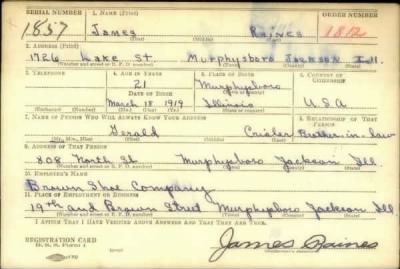 SERIAL NUMBER 1. NAME (Print) ORDER NUMBER
1857 James Raines 1812
(First) (Middle) (Last)
2. ADDRESS (Print)
1726 Lake St. Murphysboro Jackson Ill.
(Number and street or R. F. D. number) (Town) (County) (State)
3. TELEPHONE 4. AGE IN YEARS 5. PLACE OF BIRTH 6. COUNTRY OF CITIZENSHIP
21 Murphysboro
DATE OF BIRTH (Town or county)
March 18 1919 Illinois U.S.A
(Exchange) (Number) (Mo.) (Day) (Yr.) (State or country)
7. NAME OF PERSON WHO WILL ALWAYS KNOW YOUR ADDRESS 8. RELATIONSHIP OF THAT PERSON
Gerald Crisler Brother-in-law
(Mr., Mrs., Miss) (First) (Middle) (Last)
9. ADDRESS OF THAT PERSON
808 North St Murphysboro Jackson Ill.
(Number and street or R. F. D. number) (Town) (County) (State)
10. EMPLOYER'S NAME
Brown Shoe Company
11. PLACE OF EMPLOYMENT OR BUSINESS
19th and Brown Street Murphysboro Jackson Ill
(Number and street or R. F. D. number) (Town) (County) (State)
I AFFIRM THAT I HAVE VERIFIED ABOVE ANSWERS AND THAT THEY ARE TRUE.
REGISTRATION CARD
D. S. S. Form 1
James Raines